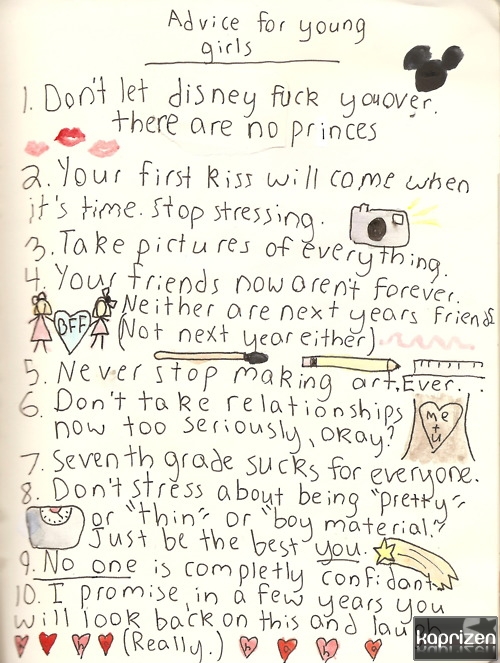 Advice for young
girls
1. Don't let disney fuck you over.
there are no princes
2. Your first kiss will come when
it's time. Stop stressing.
3. Take pictures of everything.
4. Your friends now aren't forever.
Neither are next years friends
BFF
(Not next year either)
5. Never stop making art. Ever...
6. Don't take relationships
now too seriously, okay?
me
+
u
7. Seventh grade sucks for everyone.
8. Don't stress about being "pretty"
or "thin" or "boy material."
Just be the best you.
9. No one is completly confidant
10. I promise, in a few years you
will look back on this and laugh
(Really.)
h
h a h a
kaprizen